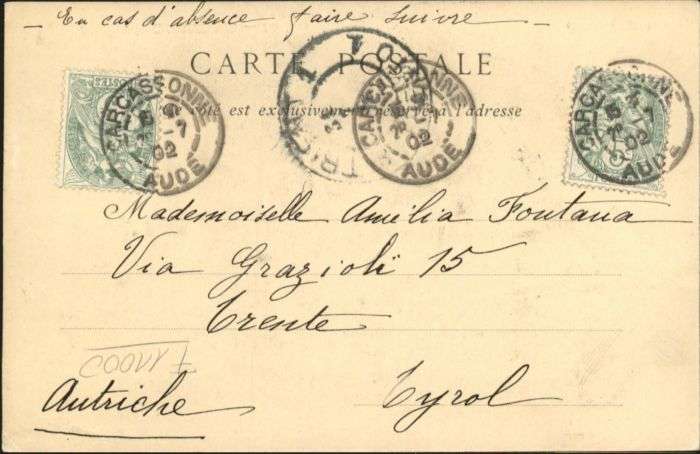 — En cas d'absence faire suivre —
CARTE POSTALE
côté est exclusivement réservé à l'adresse
CARCASSONNE
02
AUDE
CARCASSONNE
02
AUDE
CARCASSONNE
02
AUDE
Mademoiselle Amélia Fontana
Via Grazioli 15
Trente
Autriche Tyrol